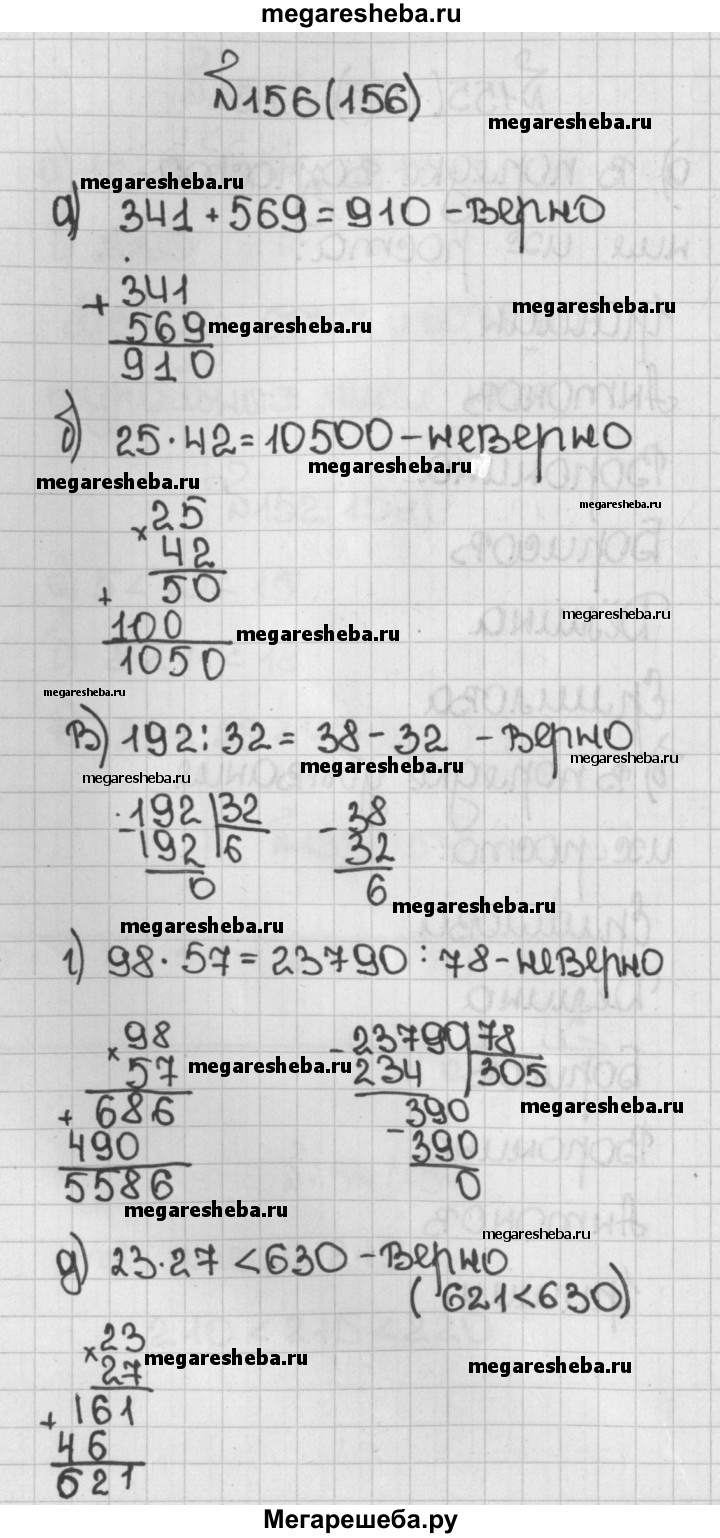 megaresheba.ru
№156(156)
megaresheba.ru
megaresheba.ru
а) 341 + 569 = 910 - верно
+ 341
569 megaresheba.ru
megaresheba.ru
910
б) 25 · 42 = 10500 - неверно
megaresheba.ru
megaresheba.ru
megaresheba.ru
× 25
42
+ 50
megaresheba.ru
100 megaresheba.ru
1050
megaresheba.ru
в) 192 : 32 = 38 - 32 - верно
megaresheba.ru
megaresheba.ru
megaresheba.ru
- 192 | 32 - 38
192 | 6 32
0 6
megaresheba.ru
megaresheba.ru
г) 98 · 57 = 23790 : 78 - неверно
× 98 - 23790 | 78
57 megaresheba.ru 234 | 305
+ 686 390
megaresheba.ru
490 - 390
5586 0
megaresheba.ru
megaresheba.ru
д) 23 · 27 < 630 - верно
(621 < 630)
× 23
27 megaresheba.ru
megaresheba.ru
+ 161
46
621
Мегарешеба.ру